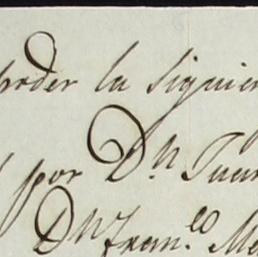 poder la siguien
por Dn Juan
Dn Franco Me